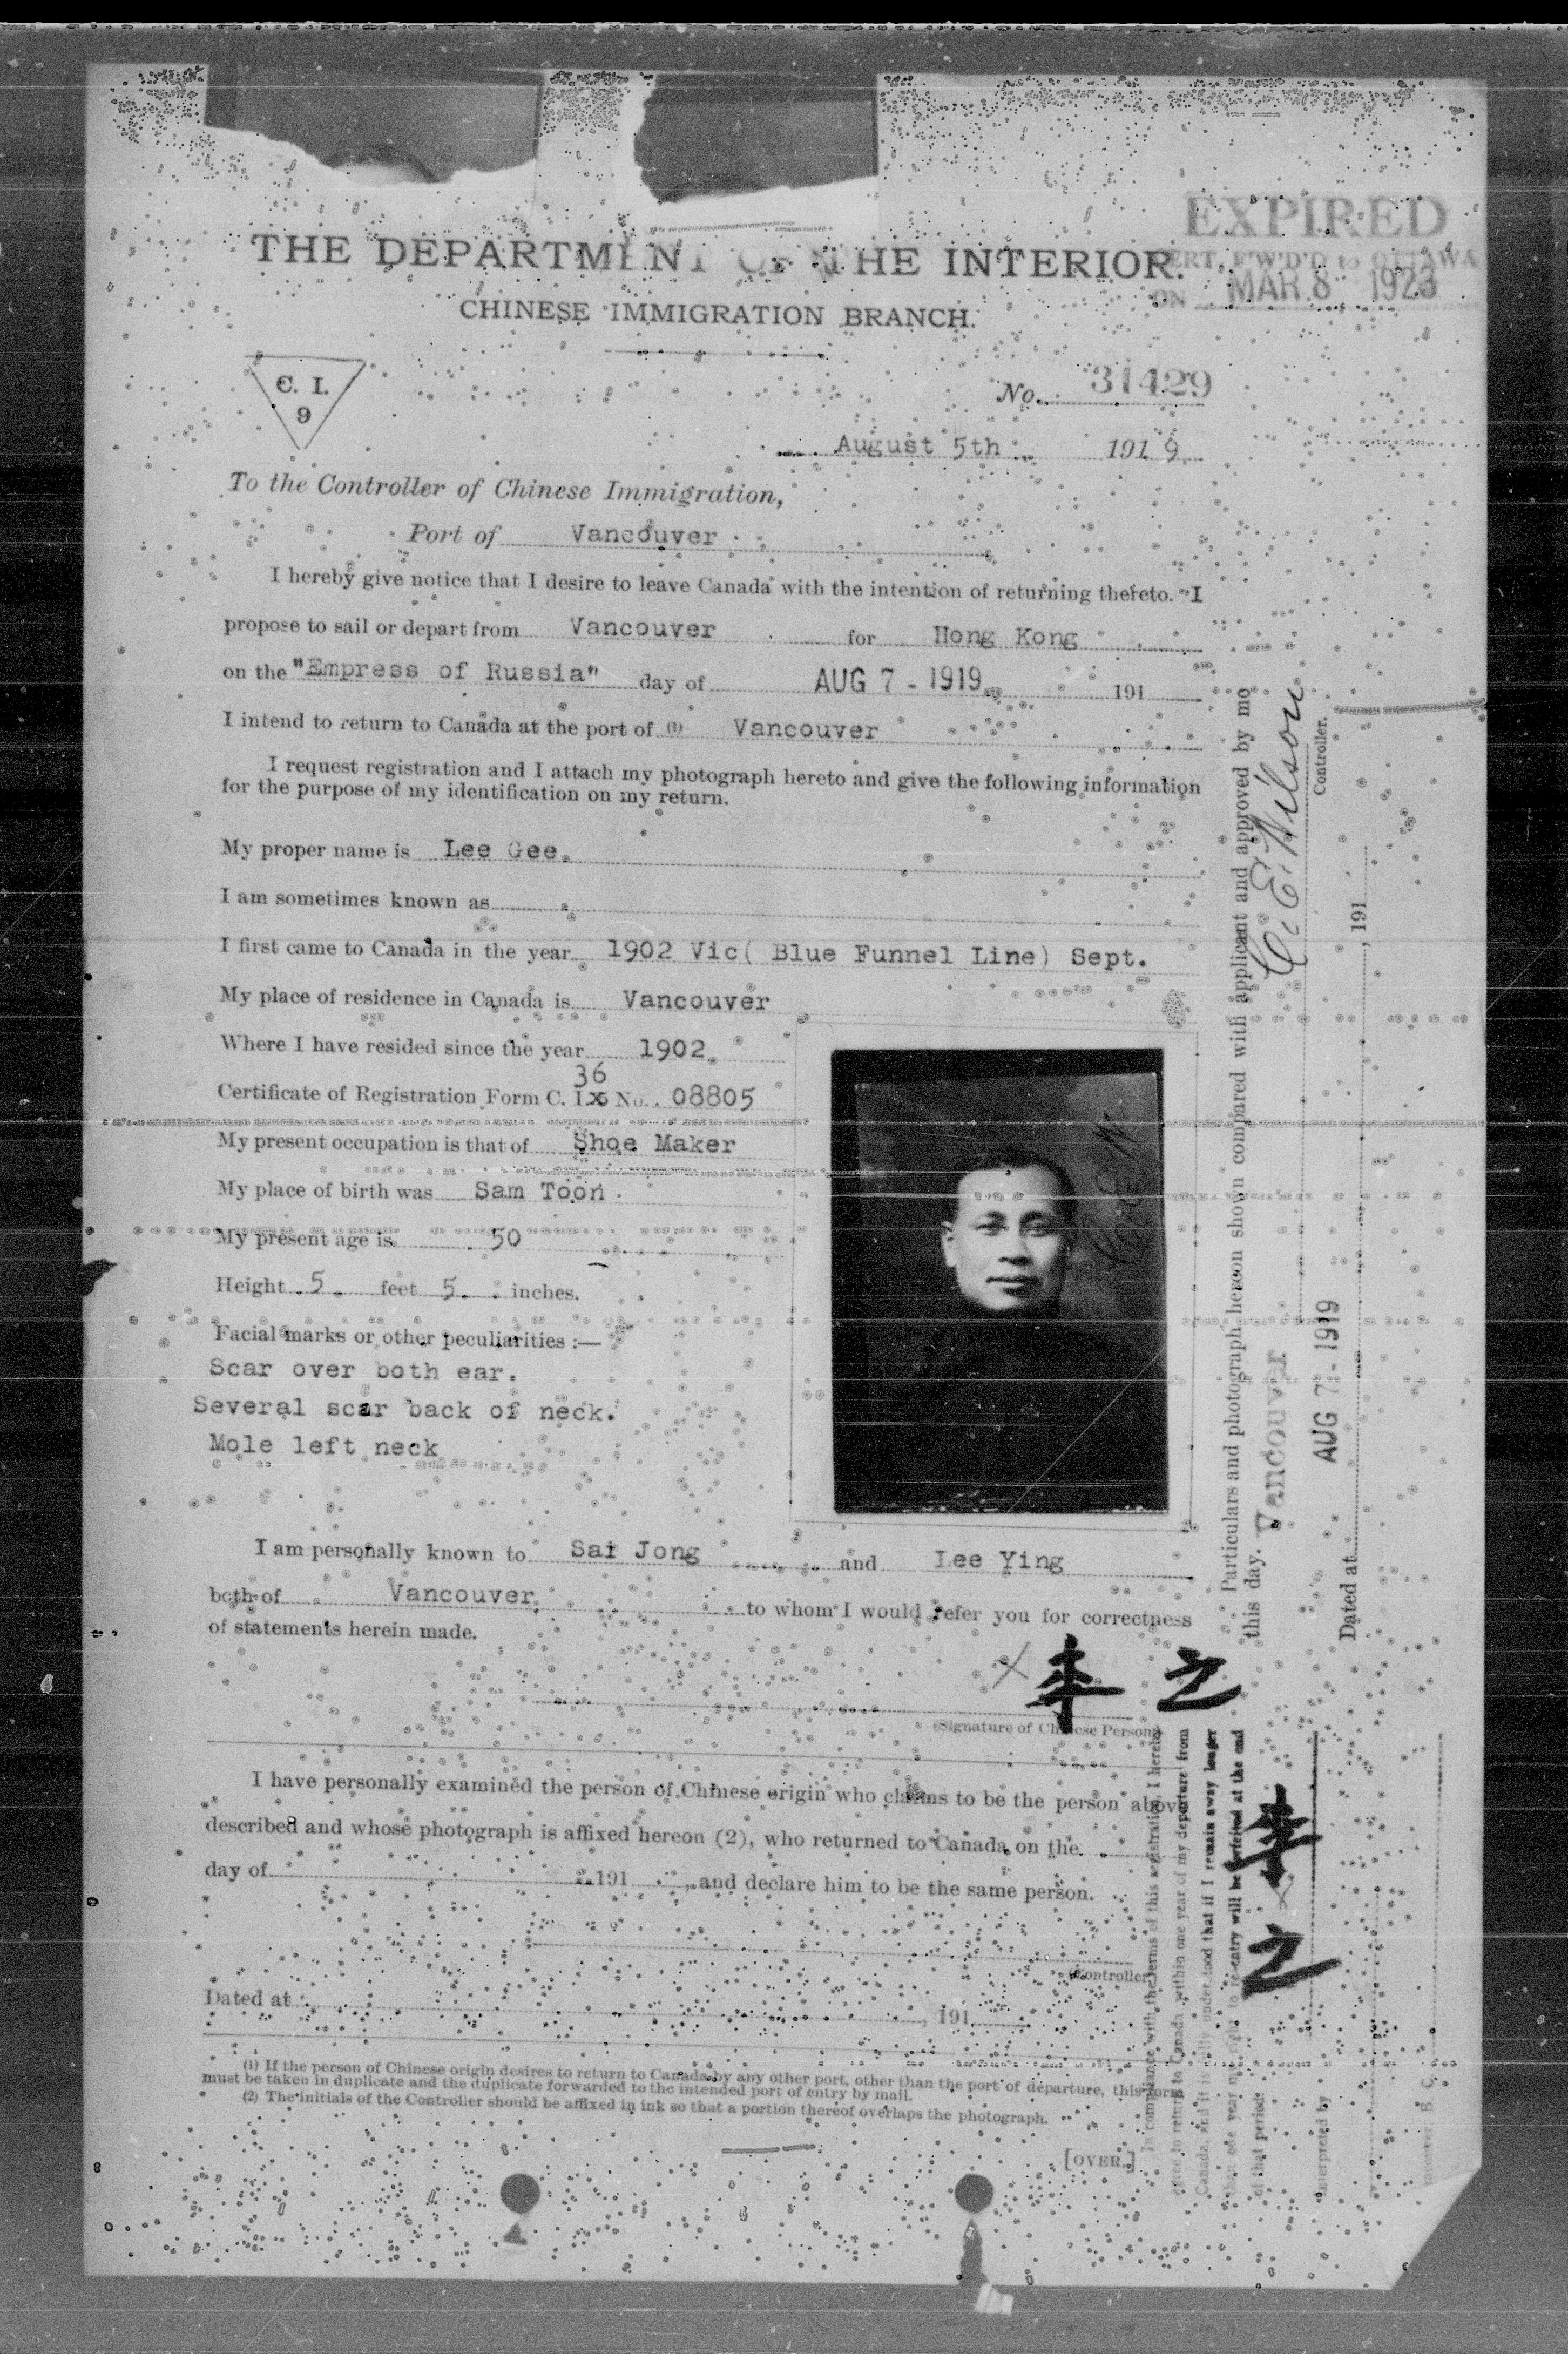 EXPIRED
CERT. F'W'D'D to OTTAWA
ON MAR 8 1923
THE DEPARTMENT OF THE INTERIOR.
CHINESE IMMIGRATION BRANCH.
C. I.
9
No. 31429
August 5th 1919
To the Controller of Chinese Immigration,
Port of Vancouver
I hereby give notice that I desire to leave Canada with the intention of returning thereto. I
propose to sail or depart from Vancouver for Hong Kong
on the "Empress of Russia" day of AUG 7 - 1919 191
I intend to return to Canada at the port of (1) Vancouver
I request registration and I attach my photograph hereto and give the following information
for the purpose of my identification on my return.
My proper name is Lee Gee.
I am sometimes known as
I first came to Canada in the year 1902 Vic( Blue Funnel Line) Sept.
My place of residence in Canada is Vancouver
Where I have resided since the year 1902
36
Certificate of Registration Form C. I. No. 08805
My present occupation is that of Shoe Maker
My place of birth was Sam Toon
My present age is 50
Height 5 feet 5 inches.
Facial marks or other peculiarities :—
Scar over both ear.
Several scar back of neck.
Mole left neck
I am personally known to Sai Jong and Lee Ying
both of Vancouver to whom I would refer you for correctness
of statements herein made.
李 之
(Signature of Chinese Person)
I have personally examined the person of Chinese origin who claims to be the person above
described and whose photograph is affixed hereon (2), who returned to Canada on the
day of 191 , and declare him to be the same person.
Controller
Dated at , 191
(1) If the person of Chinese origin desires to return to Canada by any other port, other than the port of departure, this form
must be taken in duplicate and the duplicate forwarded to the intended port of entry by mail.
(2) The initials of the Controller should be affixed in ink so that a portion thereof overlaps the photograph.
[OVER.]
Particulars and photograph hereon shown compared with applicant and approved by me
this day. Vancouver
Controller.
AUG 7 - 1919
Dated at , 191
In compliance with the terms of this registration, I hereby
agree to return to Canada within one year of my departure from
Canada, and it is fully understood that if I remain away longer
than one year my right to re-entry will be forfeited at the end
of that period.
李 之
Interpreted by
Vancouver, B. C.